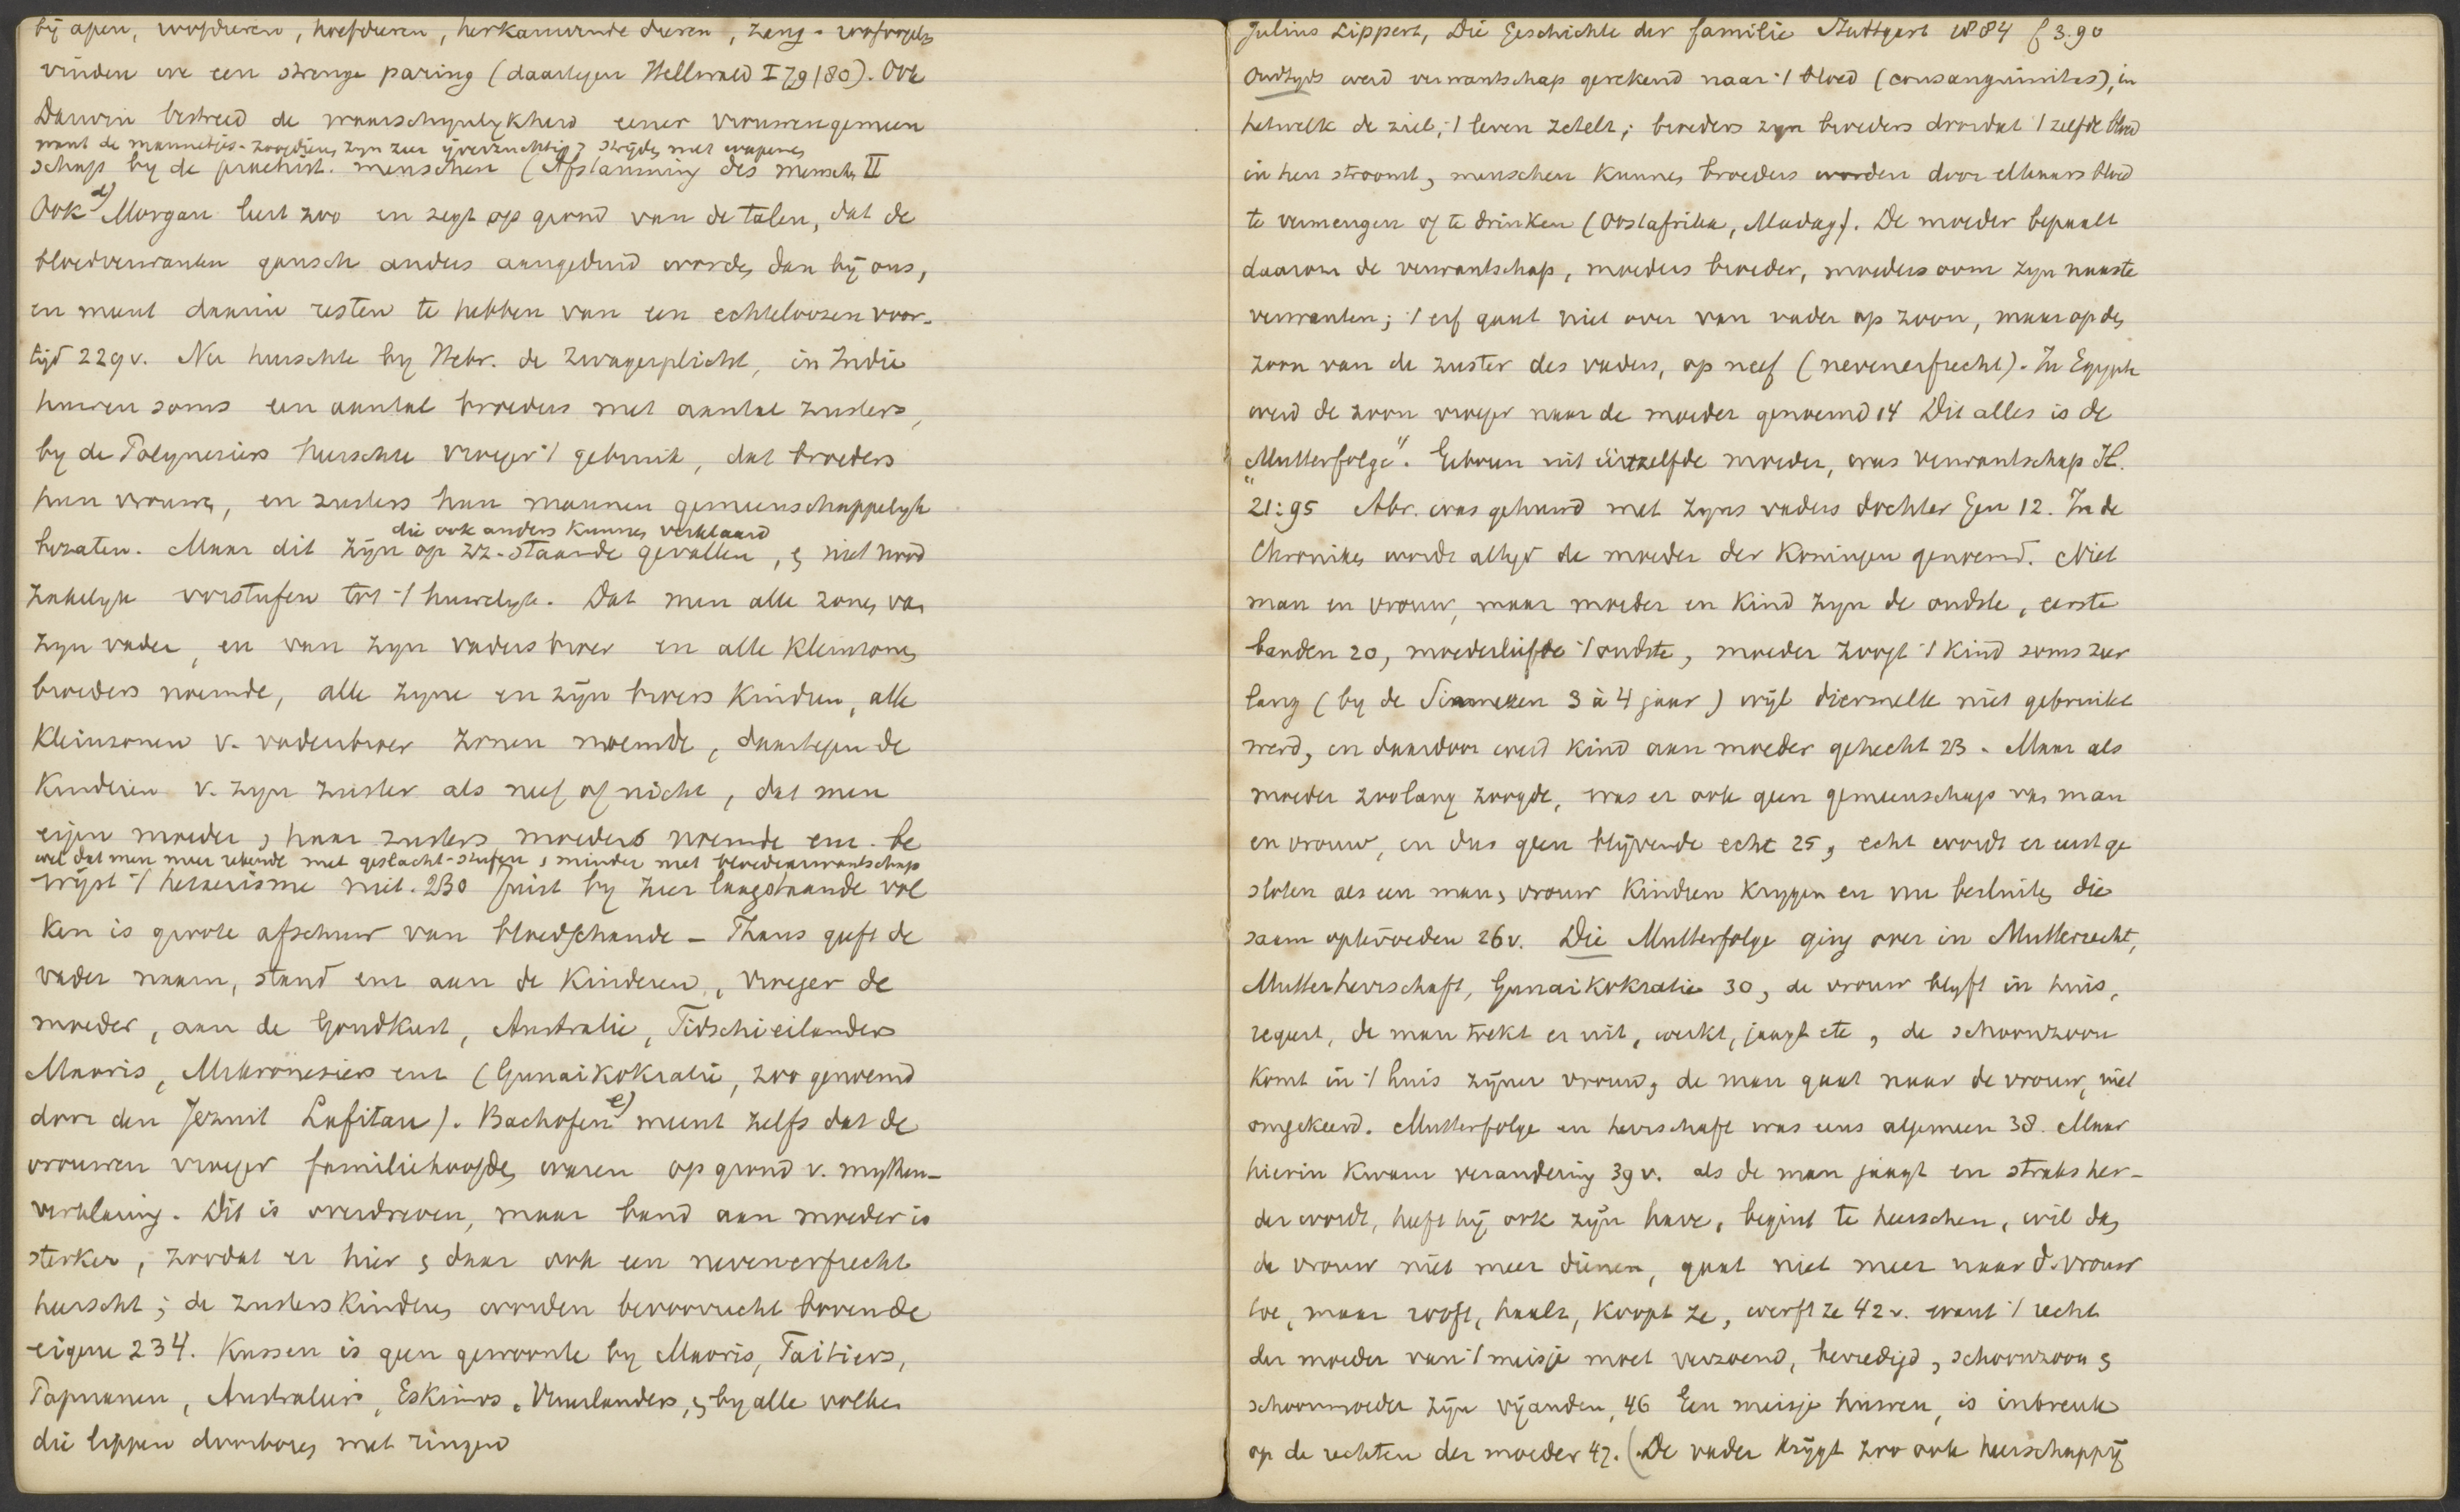 bij apen, roofdieren, hoefdieren, herkauwende dieren, zang- roofvogels
vinden we een strenge paring (daartegen Hellwald I 79/80). Ook
Darwin bestreed de waarschynlykheid eener vrouwengemeen
want de mannetjes-zoogdieren zyn zeer ijverzuchtig & strijden met wapenen
schap by de praehist. menschen (Afstamming des menschen II
Ook d) Morgan leert zoo en zegt op grond van de talen, dat de
bloedverwanten gansch anders aangeduid worden dan bij ons,
en meent daarin resten te hebben van een echteloozen voor-
tijd 229v. Nu heerschte by Hebr. de zwagerplicht, in Indie
huwen soms een aantal broeders met aantal zusters,
by de Polynesiers heerschte vroeger 't gebruik, dat broeders
hun vrouwen, en zusters hun mannen gemeenschappelyk
die ook anders kunnen verklaard
bezaten. Maar dit zijn op zz-staande gevallen, & niet nood
zakelyk voorstufen tot 't huwelyk. Dat men alle zonen van
zyn vader, en van zyn vaders broer en alle kleinzonen
broeders noemde, alle zyne en zijn broers kindren, alle
kleinzonen v. vadersbroer zonen noemde, daartegen de
kinderen v. zyn zuster als neef of nicht, dat men
eigen moeder & haar zusters moeders noemde enz. be
wel dat men meer rekende met geslacht-stufen & minder met bloedverwantschap
wijst 't hetaerisme niet. 230 Juist by zeer laagstaande vol
ken is groote afschuw van bloedschande – Thans geeft de
vader naam, stand enz aan de kinderen, vroeger de
moeder, aan de Goudkust, Australie, Fidschieilanders
Maoris, Mikronesiers enz (Gunaikokratie, zoo genoemd
door den Jezuit Lafitau). Bachofen e) meent zelfs dat de
vrouwen vroeger familiehoofden waren op grond v. mythen-
verklaring. Dit is overdreven, maar band aan moeder is
sterker, zoodat er hier & daar ook een nevenerfrecht
heerscht; de zusterskinderen worden bevoorrecht boven de
eigene 234. Kussen is geen gewoonte by Maoris, Taitiers,
Papuanen, Australiers, Eskimos, Vuurlanders, & by alle volken
die lippen doorboren met ringen
Julius Lippert, Die Geschichte der familie Stuttgart 1884 f 3.90
Oudtyds werd verwantschap gerekend naar 't bloed (consanguinitas), in
hetwelk de ziel, 't leven zetelt; broeders zyn broeders doordat 't zelfde bloed
in hen stroomt, menschen kunnen broeders worden door elkaars bloed
te vermengen of te drinken (Oostafrika, Madag). De moeder bepaalt
daarom de verwantschap, moeders broeder, moeders oom zyn naaste
verwanten; 't erf gaat niet over van vader op zoon, maar op den
zoon van de zuster des vaders, op neef (nevenerfrecht). In Egypte
werd de zoon vroeger naar de moeder genoemd 14 Dit alles is de
„Mutterfolge". Geboren uit eenzelfde moeder, was verwantschap Il.
21:95 Abr. was gehuwd met zyns vaders dochter Gen 12. In de
Chronika wordt altyd de moeder der koningen genoemd. Niet
man en vrouw, maar moeder en kind zyn de oudste, eerste
banden 20, moederliefde 't oudste, moeder zoogt 't kind soms zeer
lang (by de Siamezen 3 à 4 jaar) wijl diermelk niet gebruikt
werd, en daardoor werd kind aan moeder gehecht 23. Maar als
moeder zoolang zoogde, was er ook geen gemeenschap van man
en vrouw, en dus geen blijvende echt 25, echt wordt er eerst ge
sloten als een man & vrouw kindren krygen en nu besluiten die
saam optevoeden 26v. Die Mutterfolge ging over in Mutterrecht,
Mutterherrschaft, Gunaikokratie 30, de vrouw blyft in huis,
regeert, de man trekt er uit, werkt, jaagt etc, de schoonzoon
komt in 't huis zijner vrouw, de man gaat naar de vrouw, niet
omgekeerd. Mutterfolge en herrschaft was eens algemeen 38. Maar
hierin kwam verandering 39v. als de man jaagt en straks her-
der wordt, heeft hij ook zijn have, begint te heerschen, wil dan
de vrouw niet meer dienen, gaat niet meer naar d. vrouw
toe, maar rooft, haalt, koopt ze, werft ze 42v. want 't recht
der moeder van 't meisje moet verzoend, bevredigd, schoonzoon &
schoonmoeder zijn vijanden, 46 Een meisje huwen, is inbreuk
op de rechten der moeder 47. (De vader krijgt zoo ook heerschappij